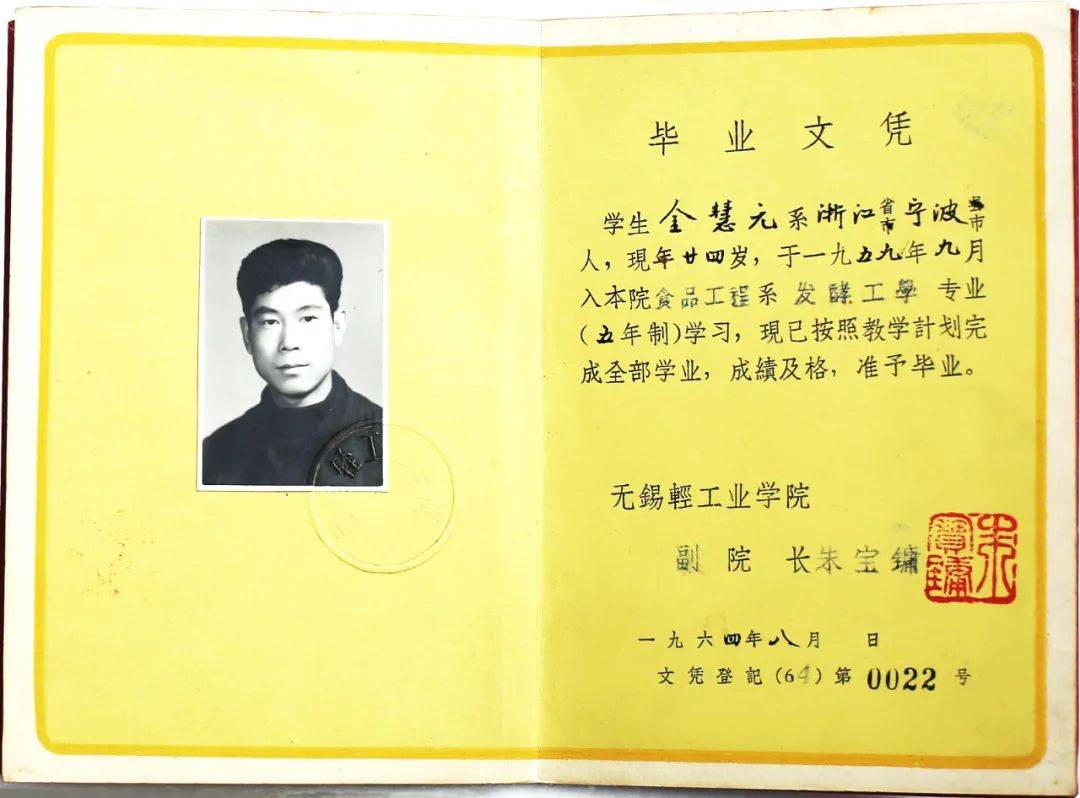 毕业文凭
学生金慧元系浙江省市宁波县市
人，現年廿四岁，于一九五九年九月
入本院食品工程系发酵工學专业
（五年制）学习，現已按照教学計划完
成全部学业，成績及格，准予毕业。
无錫輕工业学院
副院长朱宝鏞
朱寶鏞
一九六四年八月 日
文凭登記（64）第0022号